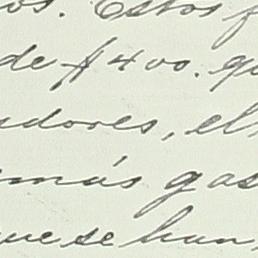 os. Estos f
de $400. qu
dores, el
más gas
que se han